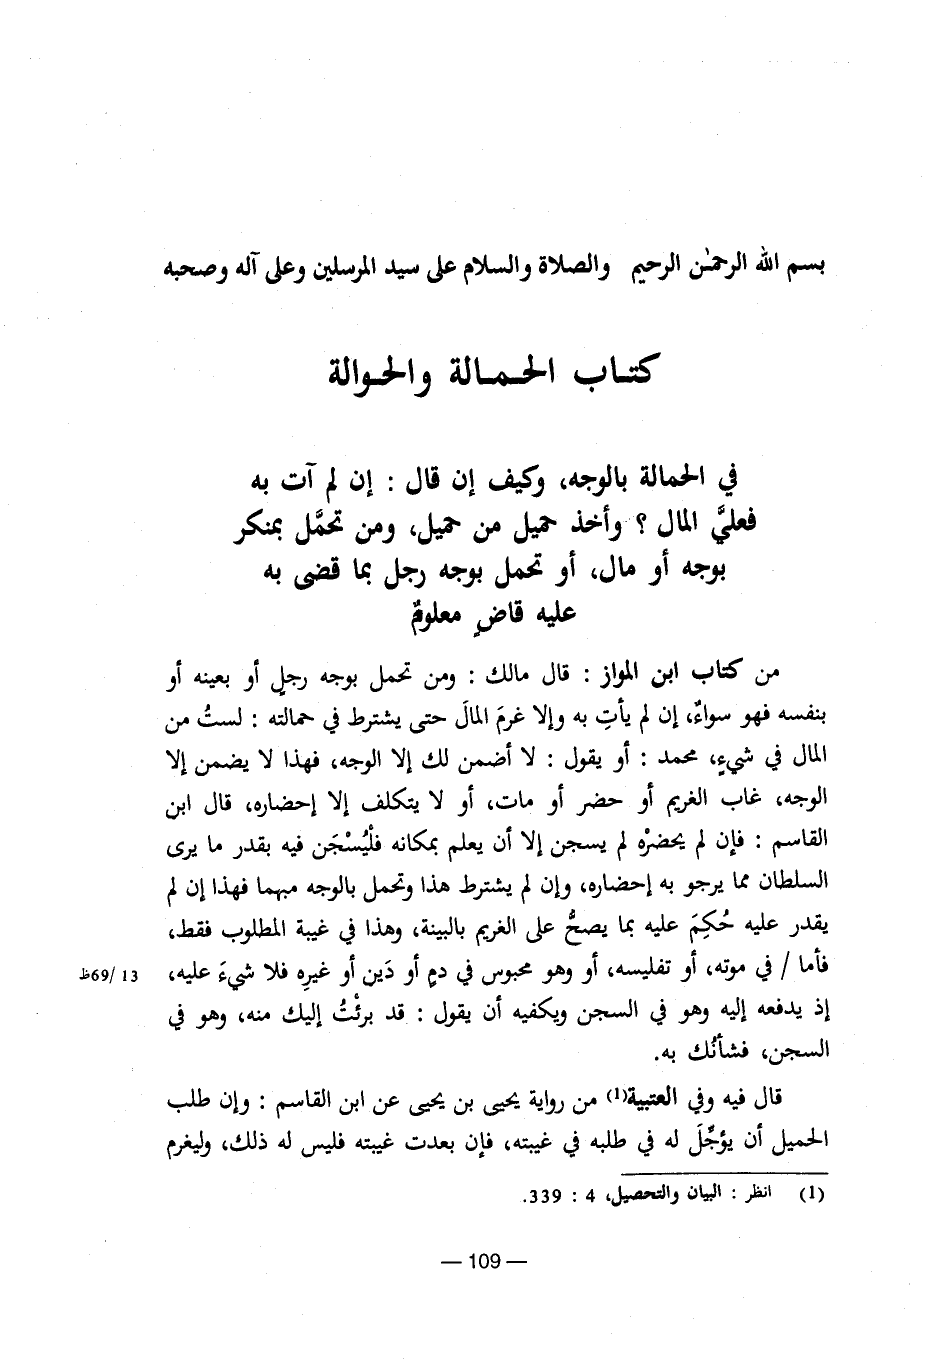 بسم الله الرحمٰن الرحيم والصلاة والسلام على سيد المرسلين وعلى آله وصحبه
كتاب الحمالة والحوالة
في الحمالة بالوجه، وكيف إن قال : إن لم آت به
فعليَّ المال ؟ وأخذ حميل من حميل، ومن تحمَّل بمنكر
بوجه أو مال، أو تحمل بوجه رجل بما قضى به
عليه قاضٍ معلومٌ
من كتاب ابن المواز : قال مالك : ومن تحمل بوجه رجلٍ أو بعينه أو
بنفسه فهو سواءٌ، إن لم يأتِ به وإلا غرمَ المالَ حتى يشترط في حمالته : لستُ من
المال في شيءٍ، محمد : أو يقول : لا أضمن لك إلا الوجه، فهذا لا يضمن إلا
الوجه، غاب الغريم أو حضر أو مات، أو لا يتكلف إلا إحضاره، قال ابن
القاسم : فإن لم يحضرْه لم يسجن إلا أن يعلم بمكانه فلْيُسْجَن فيه بقدر ما يرى
السلطان مما يرجو به إحضاره، وإن لم يشترط هذا وتحمل بالوجه مبهما فهذا إن لم
يقدر عليه حُكِمَ عليه بما يصحُّ على الغريم بالبينة، وهذا في غيبة المطلوب فقط،
فأما / في موته، أو تفليسه، أو وهو محبوس في دمٍ أو دَين أو غيرِه فلا شيءَ عليه،
13 /69ظ
إذ يدفعه إليه وهو في السجن ويكفيه أن يقول : قد برئْتُ إليك منه، وهو في
السجن، فشأنُك به.
قال فيه وفي العتبية(1) من رواية يحيى بن يحيى عن ابن القاسم : وإن طلب
الحميل أن يؤجَّلَ له في طلبه في غيبته، فإن بعدت غيبته فليس له ذلك، وليغرم
(1) انظر : البيان والتحصيل، 4 : 339.
— 109 —